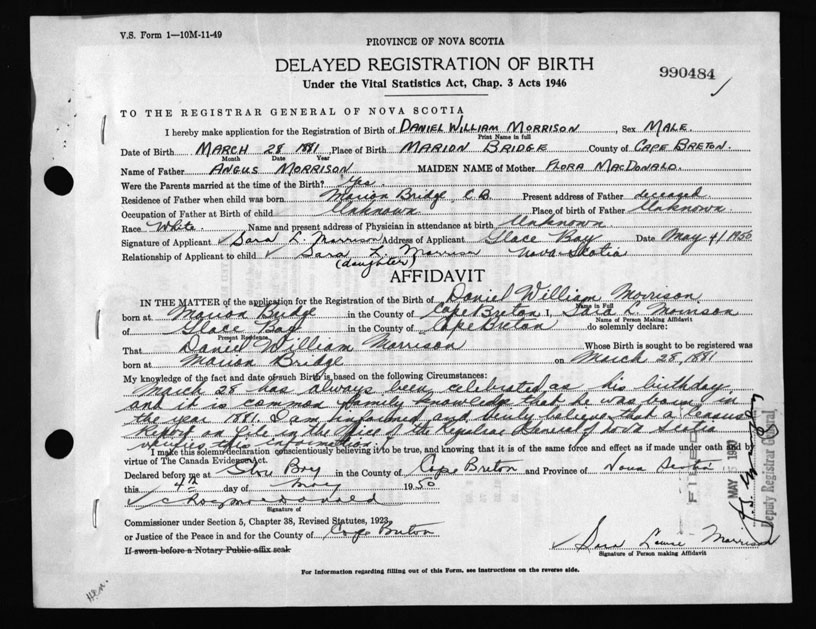 V.S. Form 1—10M-11-49
PROVINCE OF NOVA SCOTIA
DELAYED REGISTRATION OF BIRTH
Under the Vital Statistics Act, Chap. 3 Acts 1946
990484
TO THE REGISTRAR GENERAL OF NOVA SCOTIA
I hereby make application for the Registration of Birth of DANIEL WILLIAM MORRISON, Sex MALE.
Print Name in full
Date of Birth MARCH 28 1881, Place of Birth MARION BRIDGE County of CAPE BRETON.
Month Date Year
Name of Father ANGUS MORRISON MAIDEN NAME of Mother FLORA MACDONALD.
Were the Parents married at the time of the Birth? Yes.
Residence of Father when child was born Marion Bridge, C.B. Present address of Father deceased.
Occupation of Father at Birth of child Unknown Place of birth of Father Unknown
Race White. Name and present address of Physician in attendance at birth Unknown
Signature of Applicant Sara L. Morrison Address of Applicant Glace Bay Date May 4/1950
Relationship of Applicant to child Sara L. Morrison Nova Scotia
(daughter)
AFFIDAVIT
IN THE MATTER of the application for the Registration of the Birth of Daniel William Morrison
Name in Full
born at Marion Bridge in the County of Cape Breton I, Sara L. Morrison
Name of Person Making Affidavit
of Glace Bay in the County of Cape Breton do solemnly declare:
Present Residence
That Daniel William Morrison Whose Birth is sought to be registered was
born at Marion Bridge on March 28, 1881
My knowledge of the fact and date of such Birth is based on the following Circumstances:
March 28 has always been celebrated as his birthday
and it is common family knowledge that he was born in
the year 1881. I am informed and truly believe that a Census
report on file in the Office of the Registrar General of Nova Scotia
verifies this information.
I make this solemn declaration conscientiously believing it to be true, and knowing that it is of the same force and effect as if made under oath and by
virtue of The Canada Evidence Act.
Declared before me at Glace Bay in the County of Cape Breton and Province of Nova Scotia
this 4th day of May 1950
Signature of
Commissioner under Section 5, Chapter 38, Revised Statutes, 1923
or Justice of the Peace in and for the County of Cape Breton
If sworn before a Notary Public affix seal
Sara Louise Morrison
Signature of Person making Affidavit
FILED
MAY 5 1950
Deputy Registrar General
For Information regarding filling out of this Form, see Instructions on the reverse side.